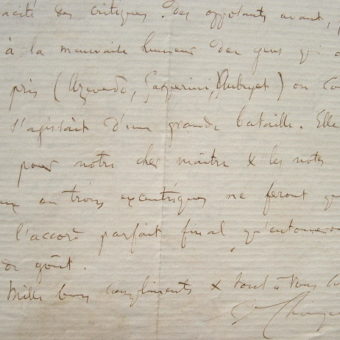 des critiques. des opposants avant,
à la mauvaise humeur des gens qui
pris (Azevedo, Gasperini, Aubryet) on
s'agissait d'une grande bataille. Elle
pour notre cher maître & les notes
ou trois excentriques ne feront
l'accord parfait final
de goût.
Mille bons compliments & tout à vous